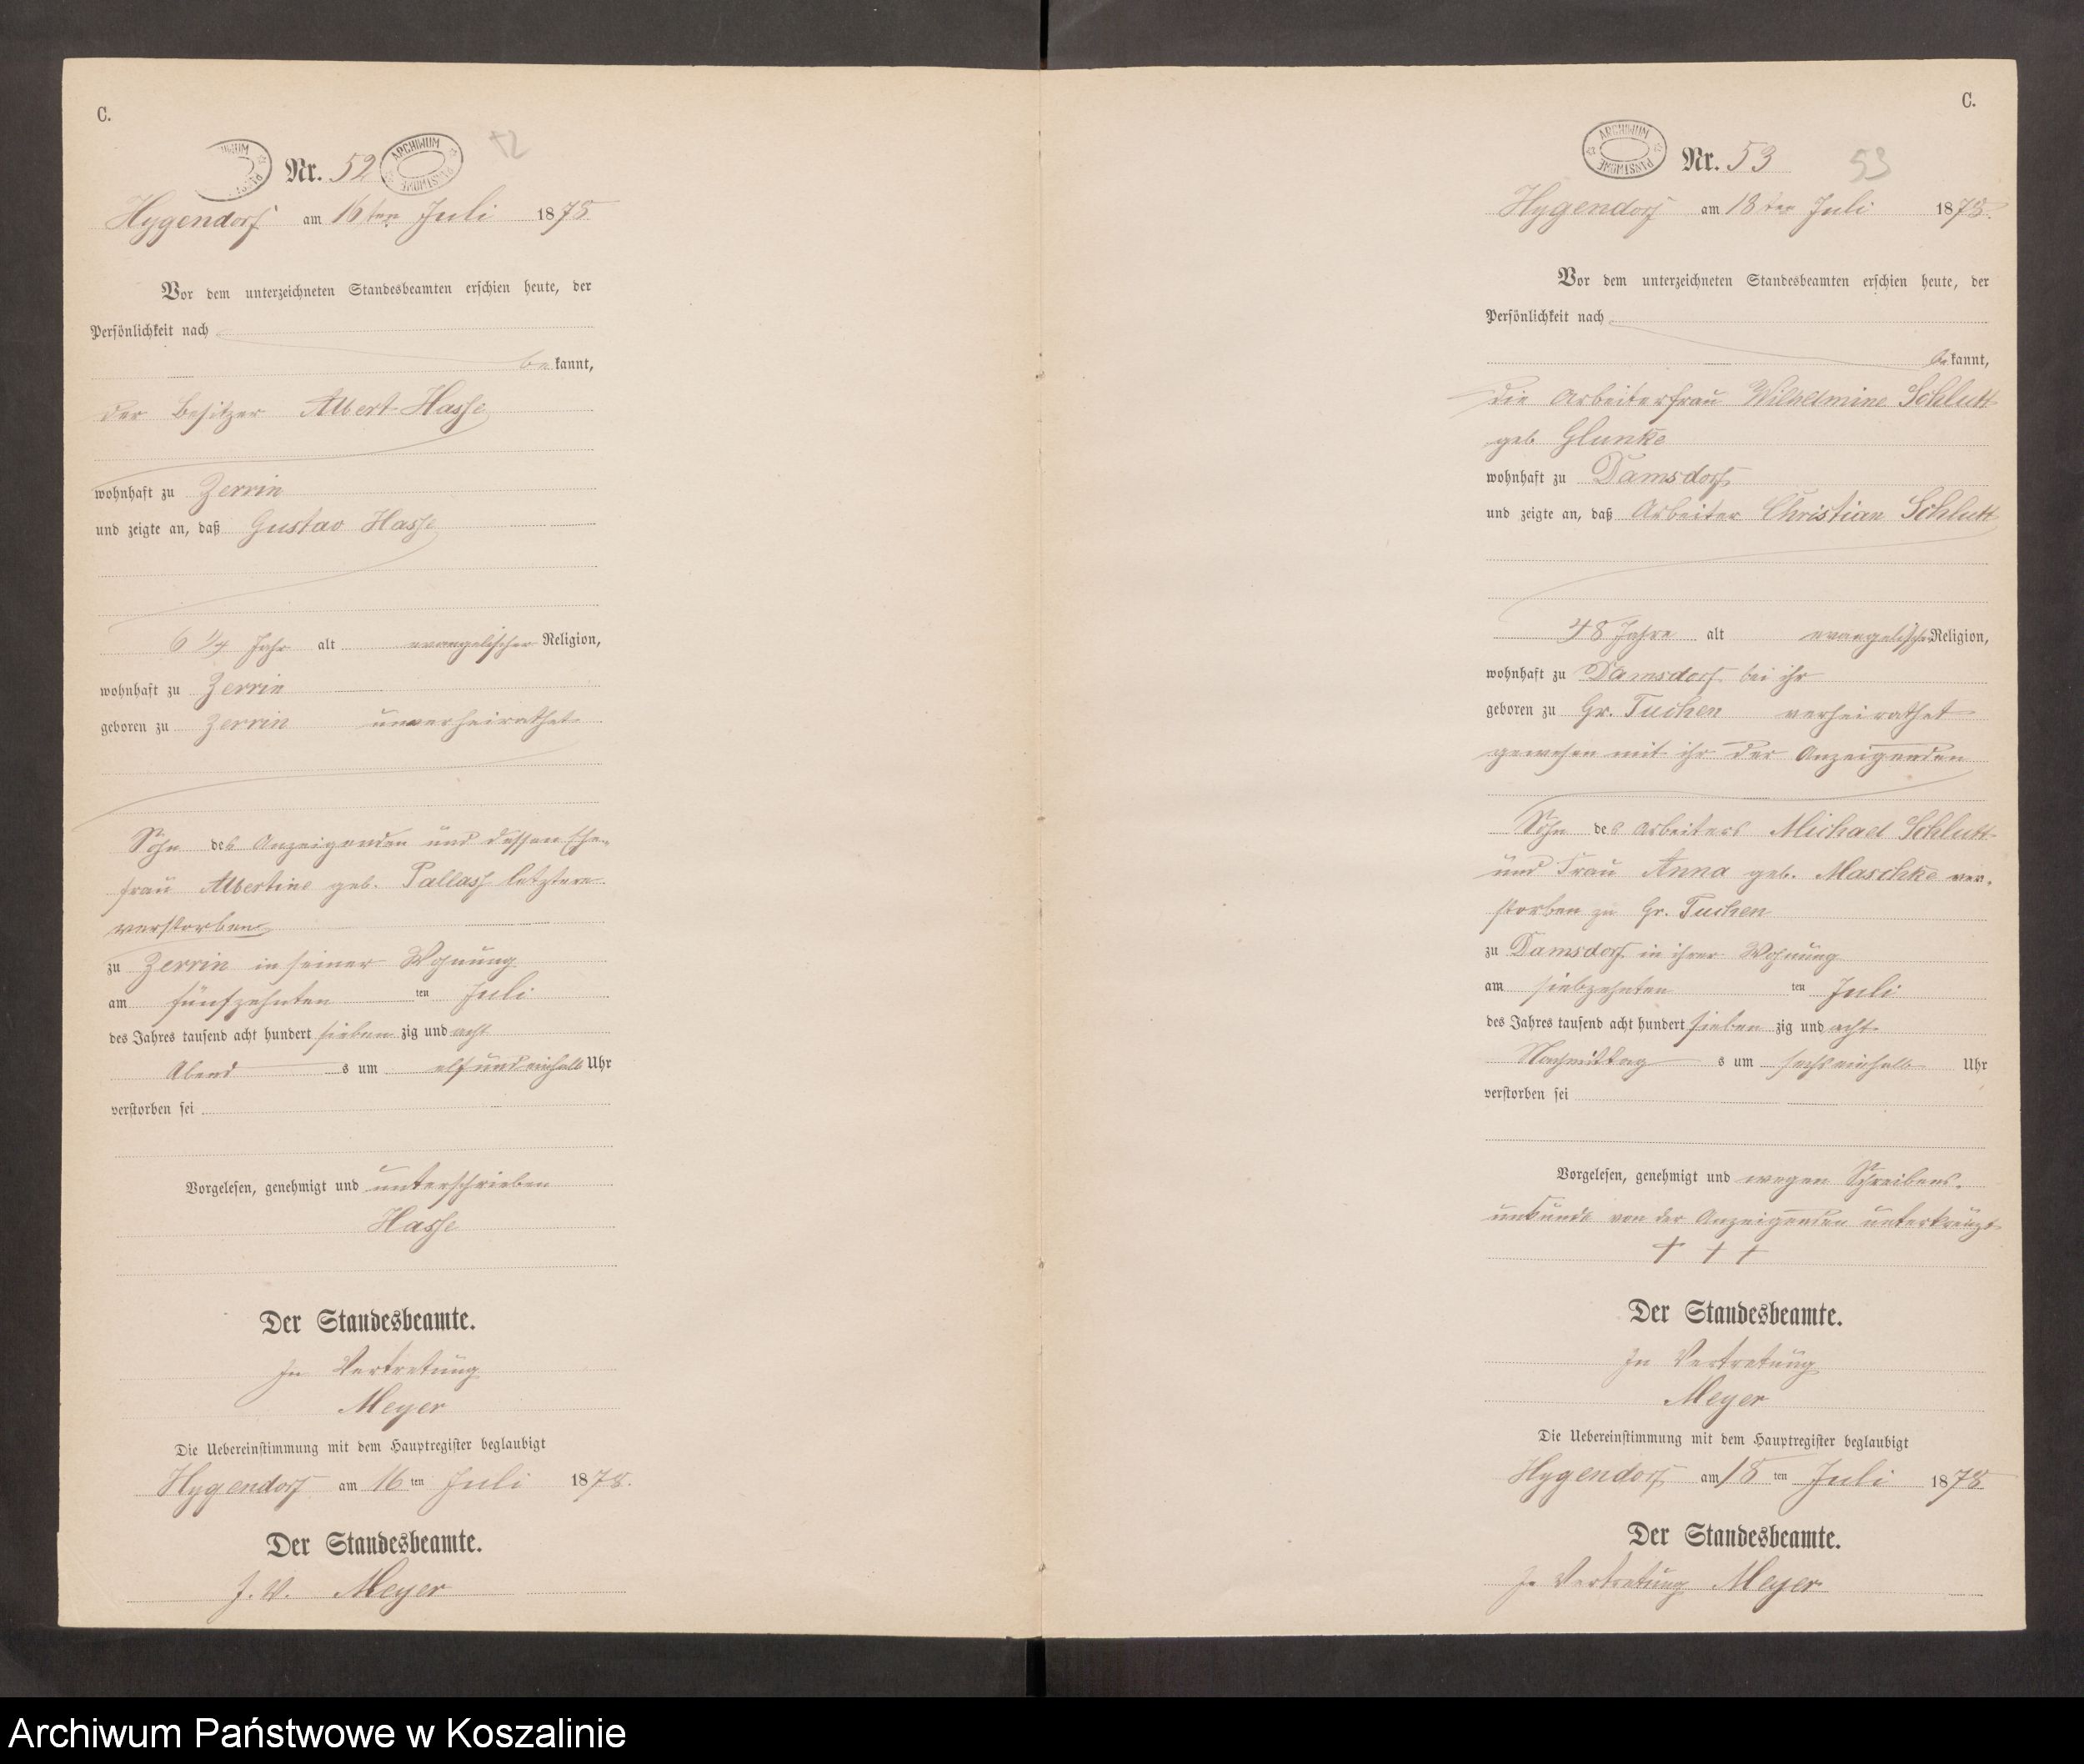 C.
Nr. 52
ARCHIWUM PAŃSTWOWE
52
Hygendorf am 16ten Juli 1878
Vor dem unterzeichneten Standesbeamten erschien heute, der
Persönlichkeit nach
be kannt,
der Besitzer Albert Hasse
wohnhaft zu Zerrin
und zeigte an, daß Gustav Hasse
6 1/4 Jahr alt evangelischer Religion,
wohnhaft zu Zerrin
geboren zu Zerrin unverheirathet
Sohn des Anzeigenden und dessen Ehe-
frau Albertine geb. Pallass letztere
verstorben
zu Zerrin in seiner Wohnung
am fünfzehnten ten Juli
des Jahres tausend acht hundert sieben zig und acht
Abend s um elf und einhalb Uhr
verstorben sei
Vorgelesen, genehmigt und unterschrieben
Hasse
Der Standesbeamte.
In Vertretung
Meyer
Die Uebereinstimmung mit dem Hauptregister beglaubigt
Hygendorf am 16 ten Juli 1878.
Der Standesbeamte.
J. V. Meyer
C.
ARCHIWUM PAŃSTWOWE
Nr. 53
53
Hygendorf am 18ten Juli 1878.
Vor dem unterzeichneten Standesbeamten erschien heute, der
Persönlichkeit nach
be kannt,
die Arbeiterfrau Wilhelmine Schlutt
geb Glunke
wohnhaft zu Damsdorf
und zeigte an, daß Arbeiter Christian Schlutt
48 Jahre alt evangelischer Religion,
wohnhaft zu Damsdorf bei ihr
geboren zu Gr. Tuchen verheirathet
gewesen mit ihr der Anzeigenden
Sohn des Arbeiters Michael Schlutt
und Frau Anna geb. Maschke ver-
storben zu Gr. Tuchen
zu Damsdorf in ihrer Wohnung
am siebzehnten ten Juli
des Jahres tausend acht hundert sieben zig und acht
Nachmittag s um sechs einhalb Uhr
verstorben sei
Vorgelesen, genehmigt und wegen Schreibens-
unkunde von der Anzeigenden unterkreuzt
+ + +
Der Standesbeamte.
In Vertretung
Meyer
Die Uebereinstimmung mit dem Hauptregister beglaubigt
Hygendorf am 18 ten Juli 1878
Der Standesbeamte.
In Vertretung Meyer
Archiwum Państwowe w Koszalinie